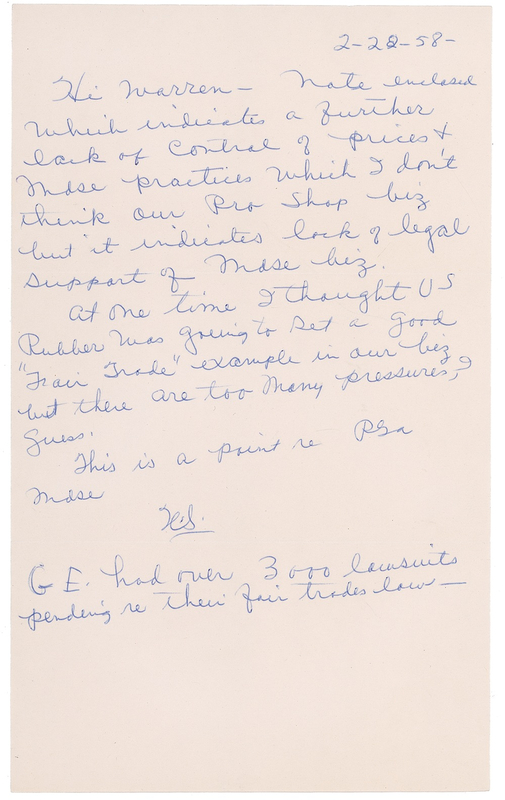 2-22-58-
Hi Warren - Note enclosed
which indicates a further
lack of Control of prices &
Mdse practices which I don't
think our Pro Shop biz
but it indicates lack of legal
support of Mdse biz.
At one time I thought US
Rubber was going to set a good
"Fair Trade" example in our biz
but there are too many pressures, I
guess.
This is a point re PGA
Mdse
G.E. had over 3000 lawsuits
pending re their fair trades law -